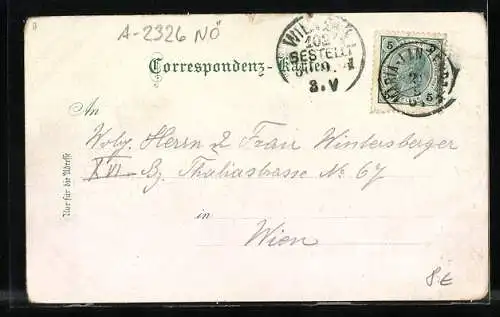 A-2326 NÖ
Correspondenz-Karte
BESTELLT
8.V
5 5
An
Wolg. Herrn & Frau Wintersberger
XVI. Bz. Thaliastrasse No 67
in
Wien
Nur für die Adresse
8€